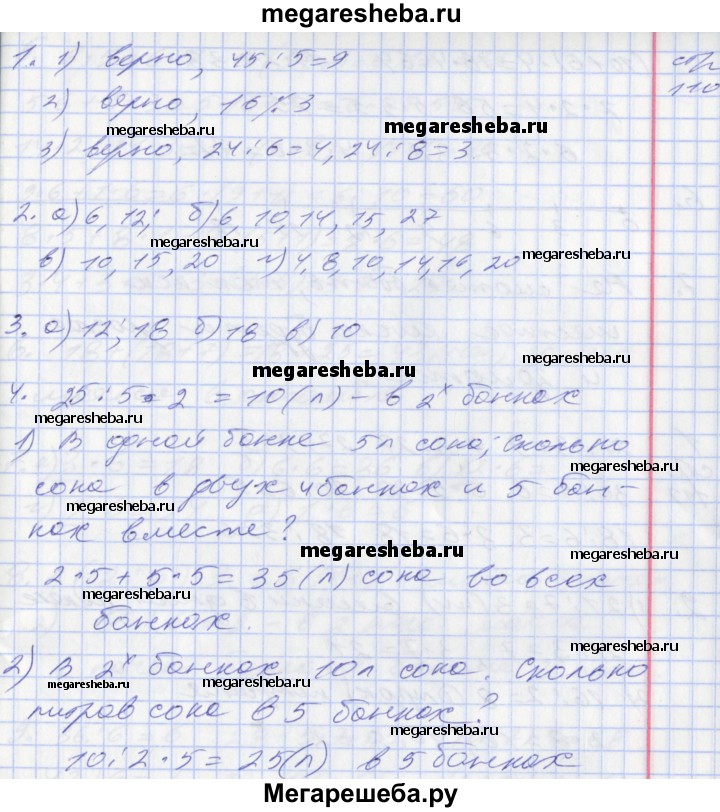 megaresheba.ru
1. 1) верно, 45:5=9
стр 110
2) верно, 16 ⁒ 3
megaresheba.ru
megaresheba.ru
3) верно, 24:6=4, 24:8=3
2. а) 6, 12; б) 6, 10, 14, 15, 27
megaresheba.ru
megaresheba.ru
в) 10, 15, 20 г) 4, 8, 10, 14, 16, 20
3. а) 12; 18 б) 18 в) 10
megaresheba.ru
megaresheba.ru
4. 25:5·2 = 10(л) – в 2х банках
megaresheba.ru
1) В одной банке 5л сока, Сколько
megaresheba.ru
сока в двух банках и 5 бан-
ках вместе?
megaresheba.ru
2·5+5·5=35(л) сока во всех
megaresheba.ru
банках.
megaresheba.ru
2) В 2х банках 10л сока. Сколько
megaresheba.ru
megaresheba.ru
литров сока в 5 банках?
megaresheba.ru
10:2·5=25(л) в 5 банках
Мегарешеба.ру